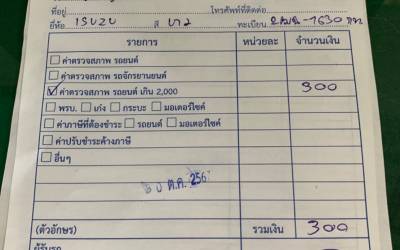 ที่อยู่ โทรศัพท์ที่ติดต่อ
ยี่ห้อ ISUZU สี ขาว ทะเบียน -1630 กทว
รายการ หน่วยละ จำนวนเงิน
ค่าตรวจสภาพ รถยนต์
ค่าตรวจสภาพ รถจักรยานยนต์
ค่าตรวจสภาพ รถยนต์ เกิน 2,000 300
พรบ. เก๋ง กระบะ มอเตอร์ไซค์
ค่าภาษีที่ต้องชำระ รถยนต์ มอเตอร์ไซค์
ค่าปรับชำระค้างภาษี
อื่นๆ
ต.ค. 256
(ตัวอักษร) รวมเงิน 300
ผู้รับรถ